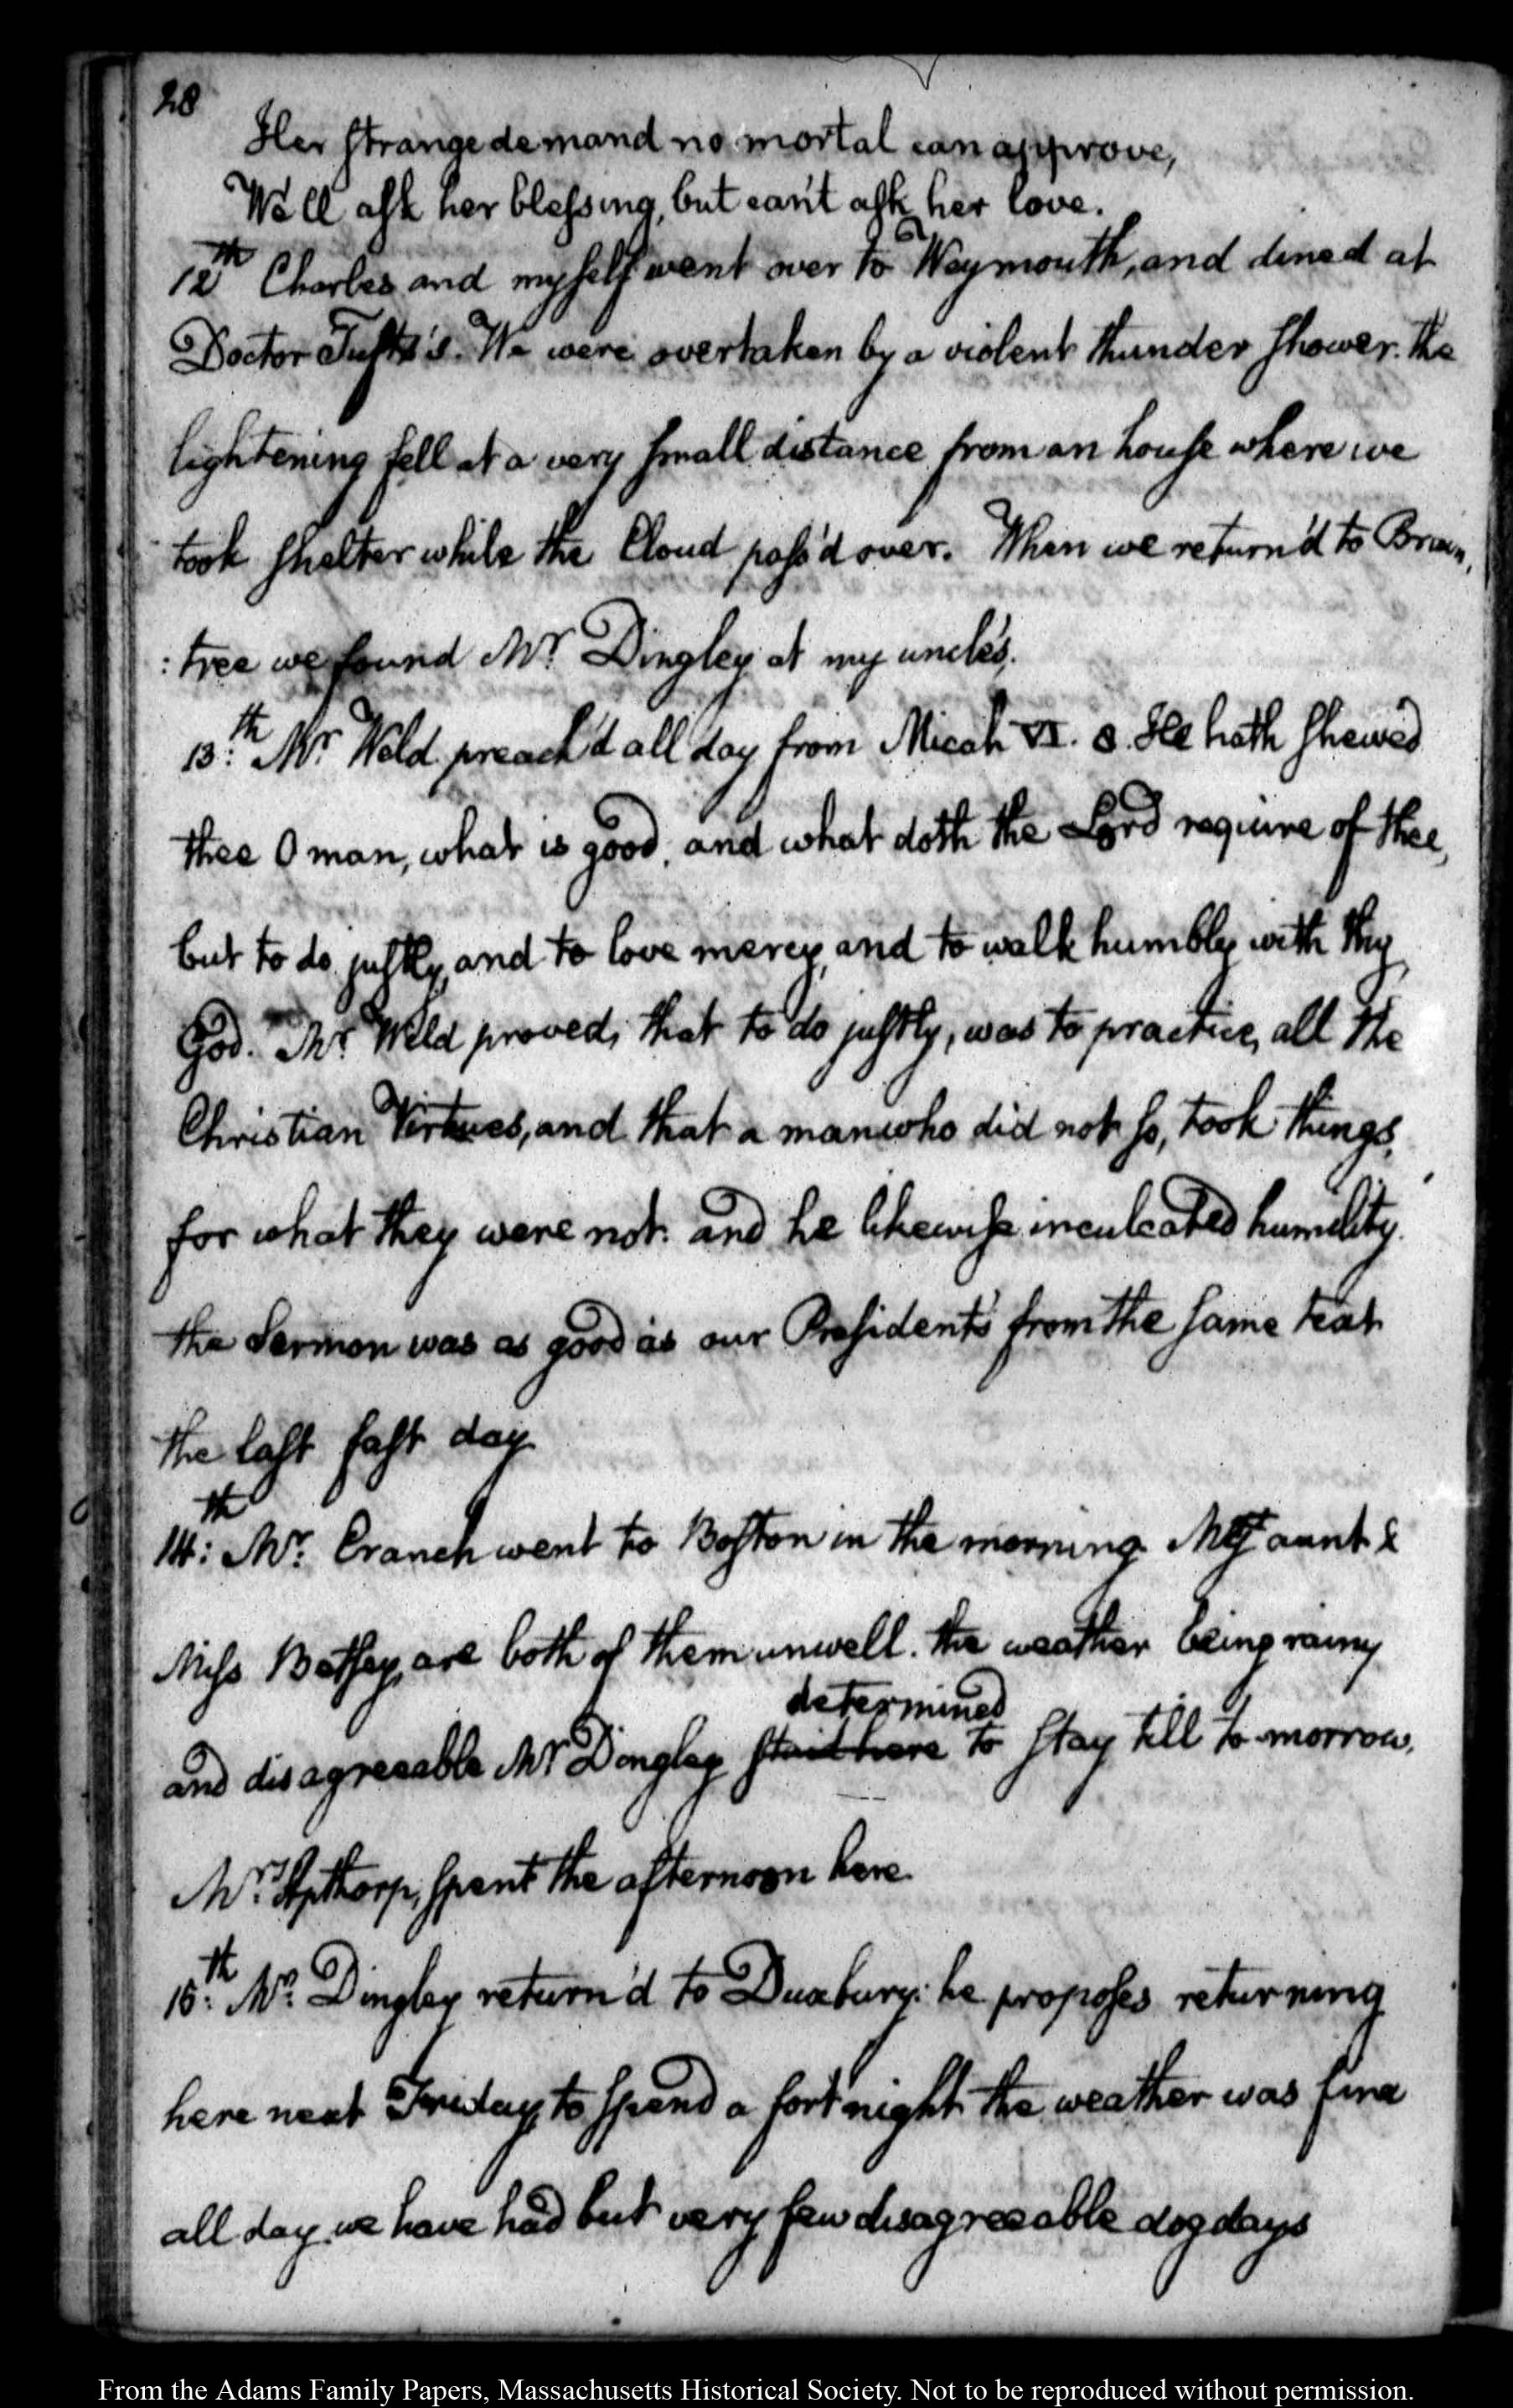 28
Her strange demand no mortal can approve,
We'll ask her blessing, but can't ask her love.
12th Charles and myself went over to Weymouth, and dined at
Doctor Tufts's. We were overtaken by a violent thunder shower. the
lightening fell at a very small distance from an house where we
took shelter while the Cloud pass'd over. When we return'd to Brain,
: tree we found Mr. Dingley at my uncle's.
13:th Mr. Weld preach'd all day from Micah VI. 8. He hath shewed
thee O man, what is good, and what doth the Lord require of thee,
but to do justly, and to love mercy, and to walk humbly with thy
God. Mr. Weld proved, that to do justly, was to practice, all the
Christian Virtues, and that a man who did not so, took things,
for what they were not. and he likewise inculcated humility.
the Sermon was as good as our President's from the same text
the last fast day.
14:th Mr. Cranch went to Boston in the morning. My aunt &
Miss Betsey, are both of them unwell. the weather being rainy
determined
and disagreeable Mr Dingley staid here to stay till to-morrow.
Mr. Apthorp, spent the afternoon here.
15:th Mr. Dingley return'd to Duxbury: he proposes returning
here next Friday, to spend a fortnight. the weather was fine
all day. we have had but very few disagreeable dog days
From the Adams Family Papers, Massachusetts Historical Society. Not to be reproduced without permission.